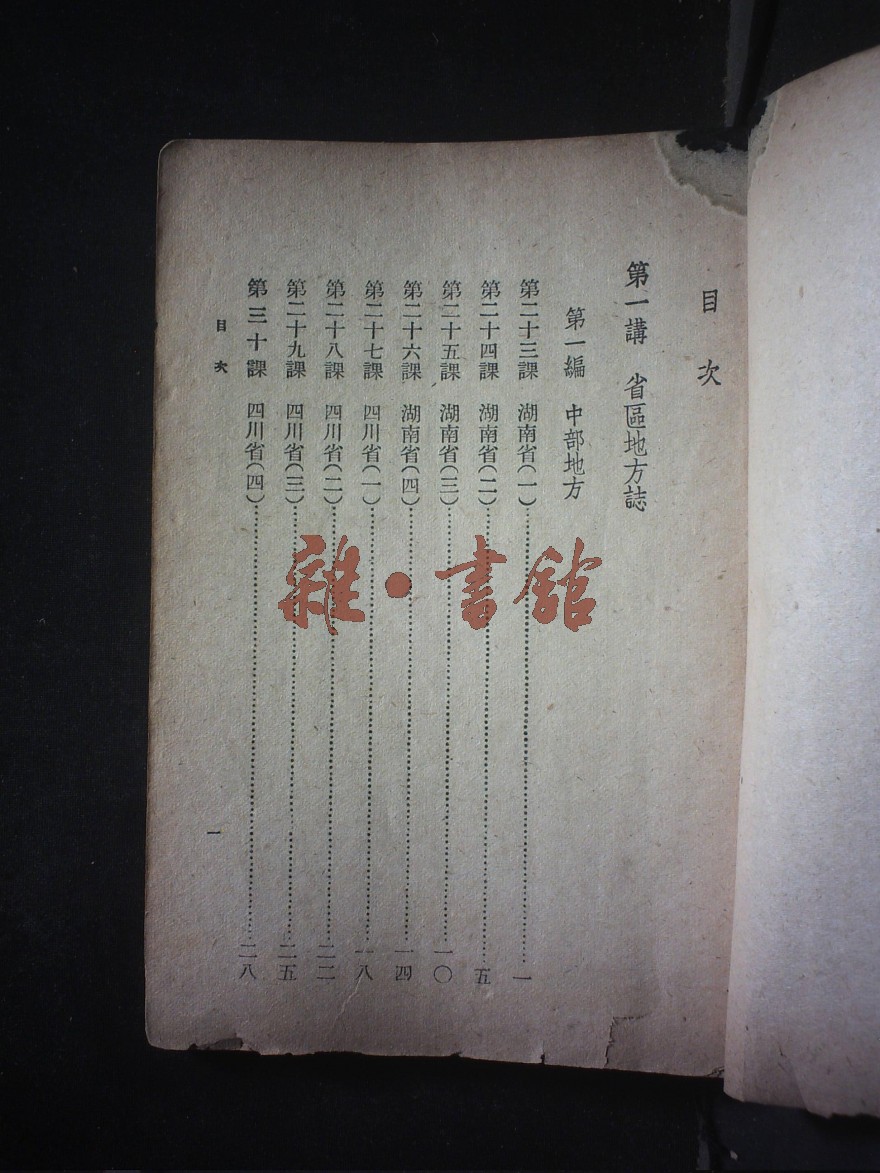 目次
第一講　省區地方誌
第一編　中部地方
第二十三課　湖南省(一)……一
第二十四課　湖南省(二)……五
第二十五課　湖南省(三)……一〇
第二十六課　湖南省(四)……一四
第二十七課　四川省(一)……一八
第二十八課　四川省(二)……二二
第二十九課　四川省(三)……二五
第三十課　四川省(四)……二八
目次
一
雜·書館